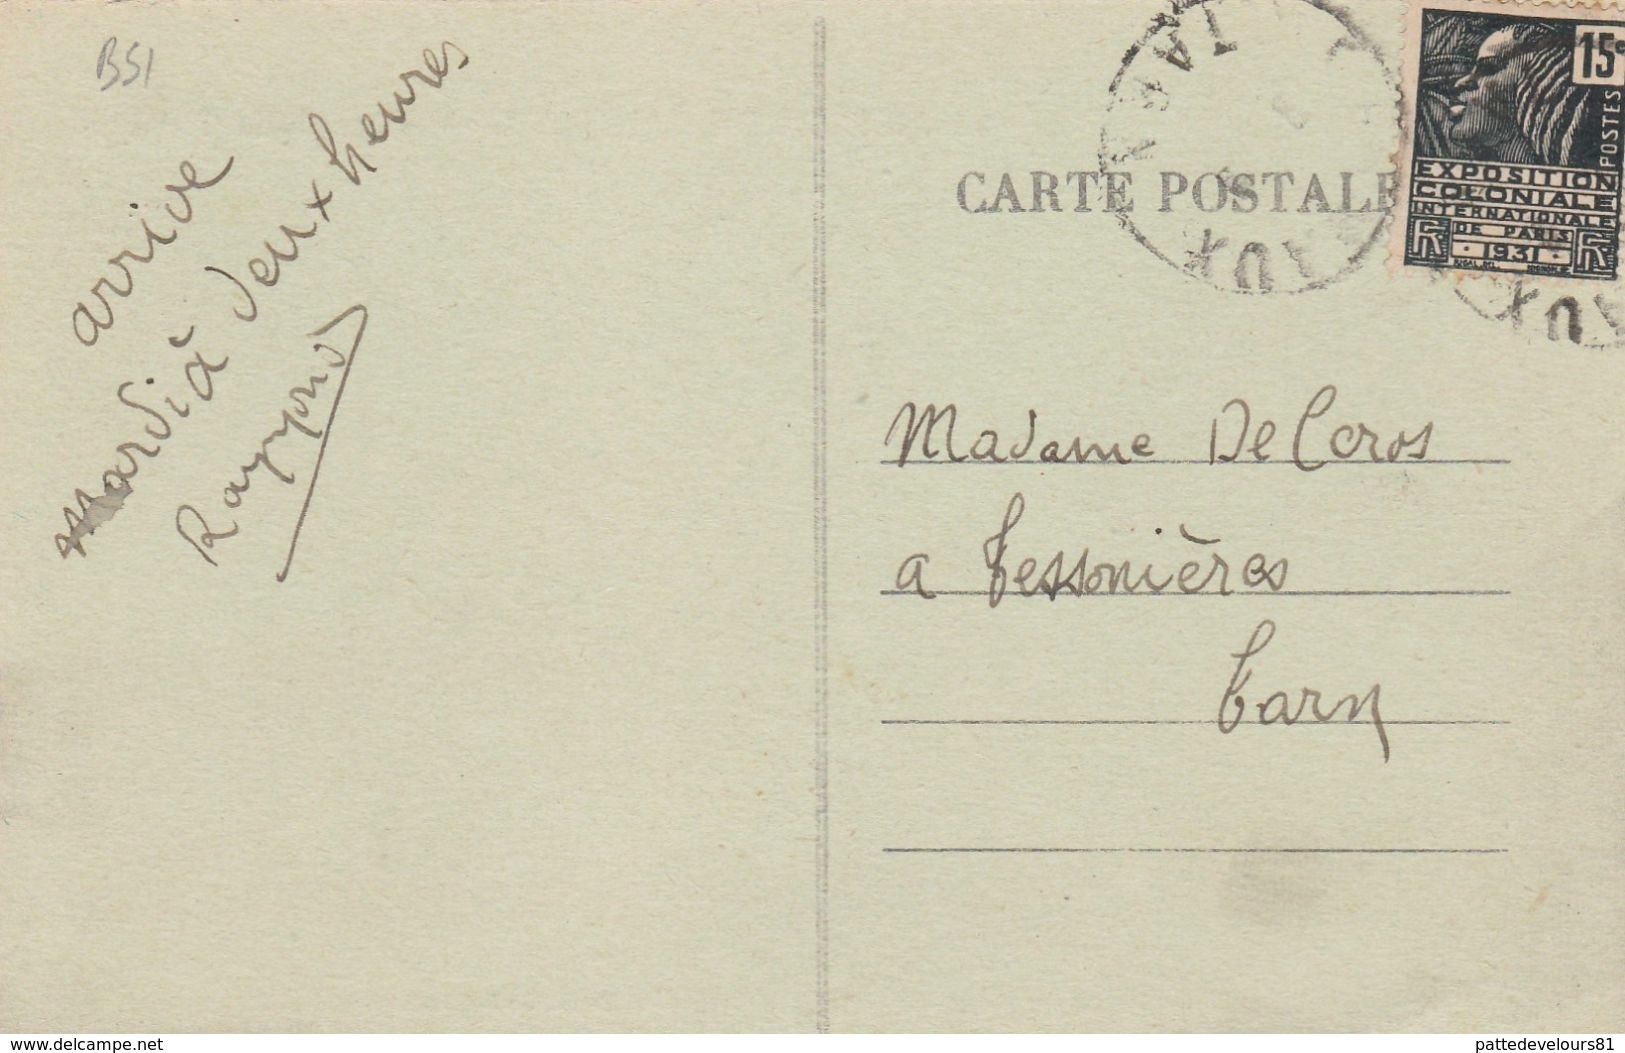 BSI
arrive
mardi à deux heures
Raymond
CARTE POSTALE
TA
AUX
15c
POSTES
EXPOSITION
COLONIALE
INTERNATIONALE
DE PARIS
1931
AUX
Madame De Ceros
a Tessonières
Tarn
www.delcampe.net
pattedevelours81